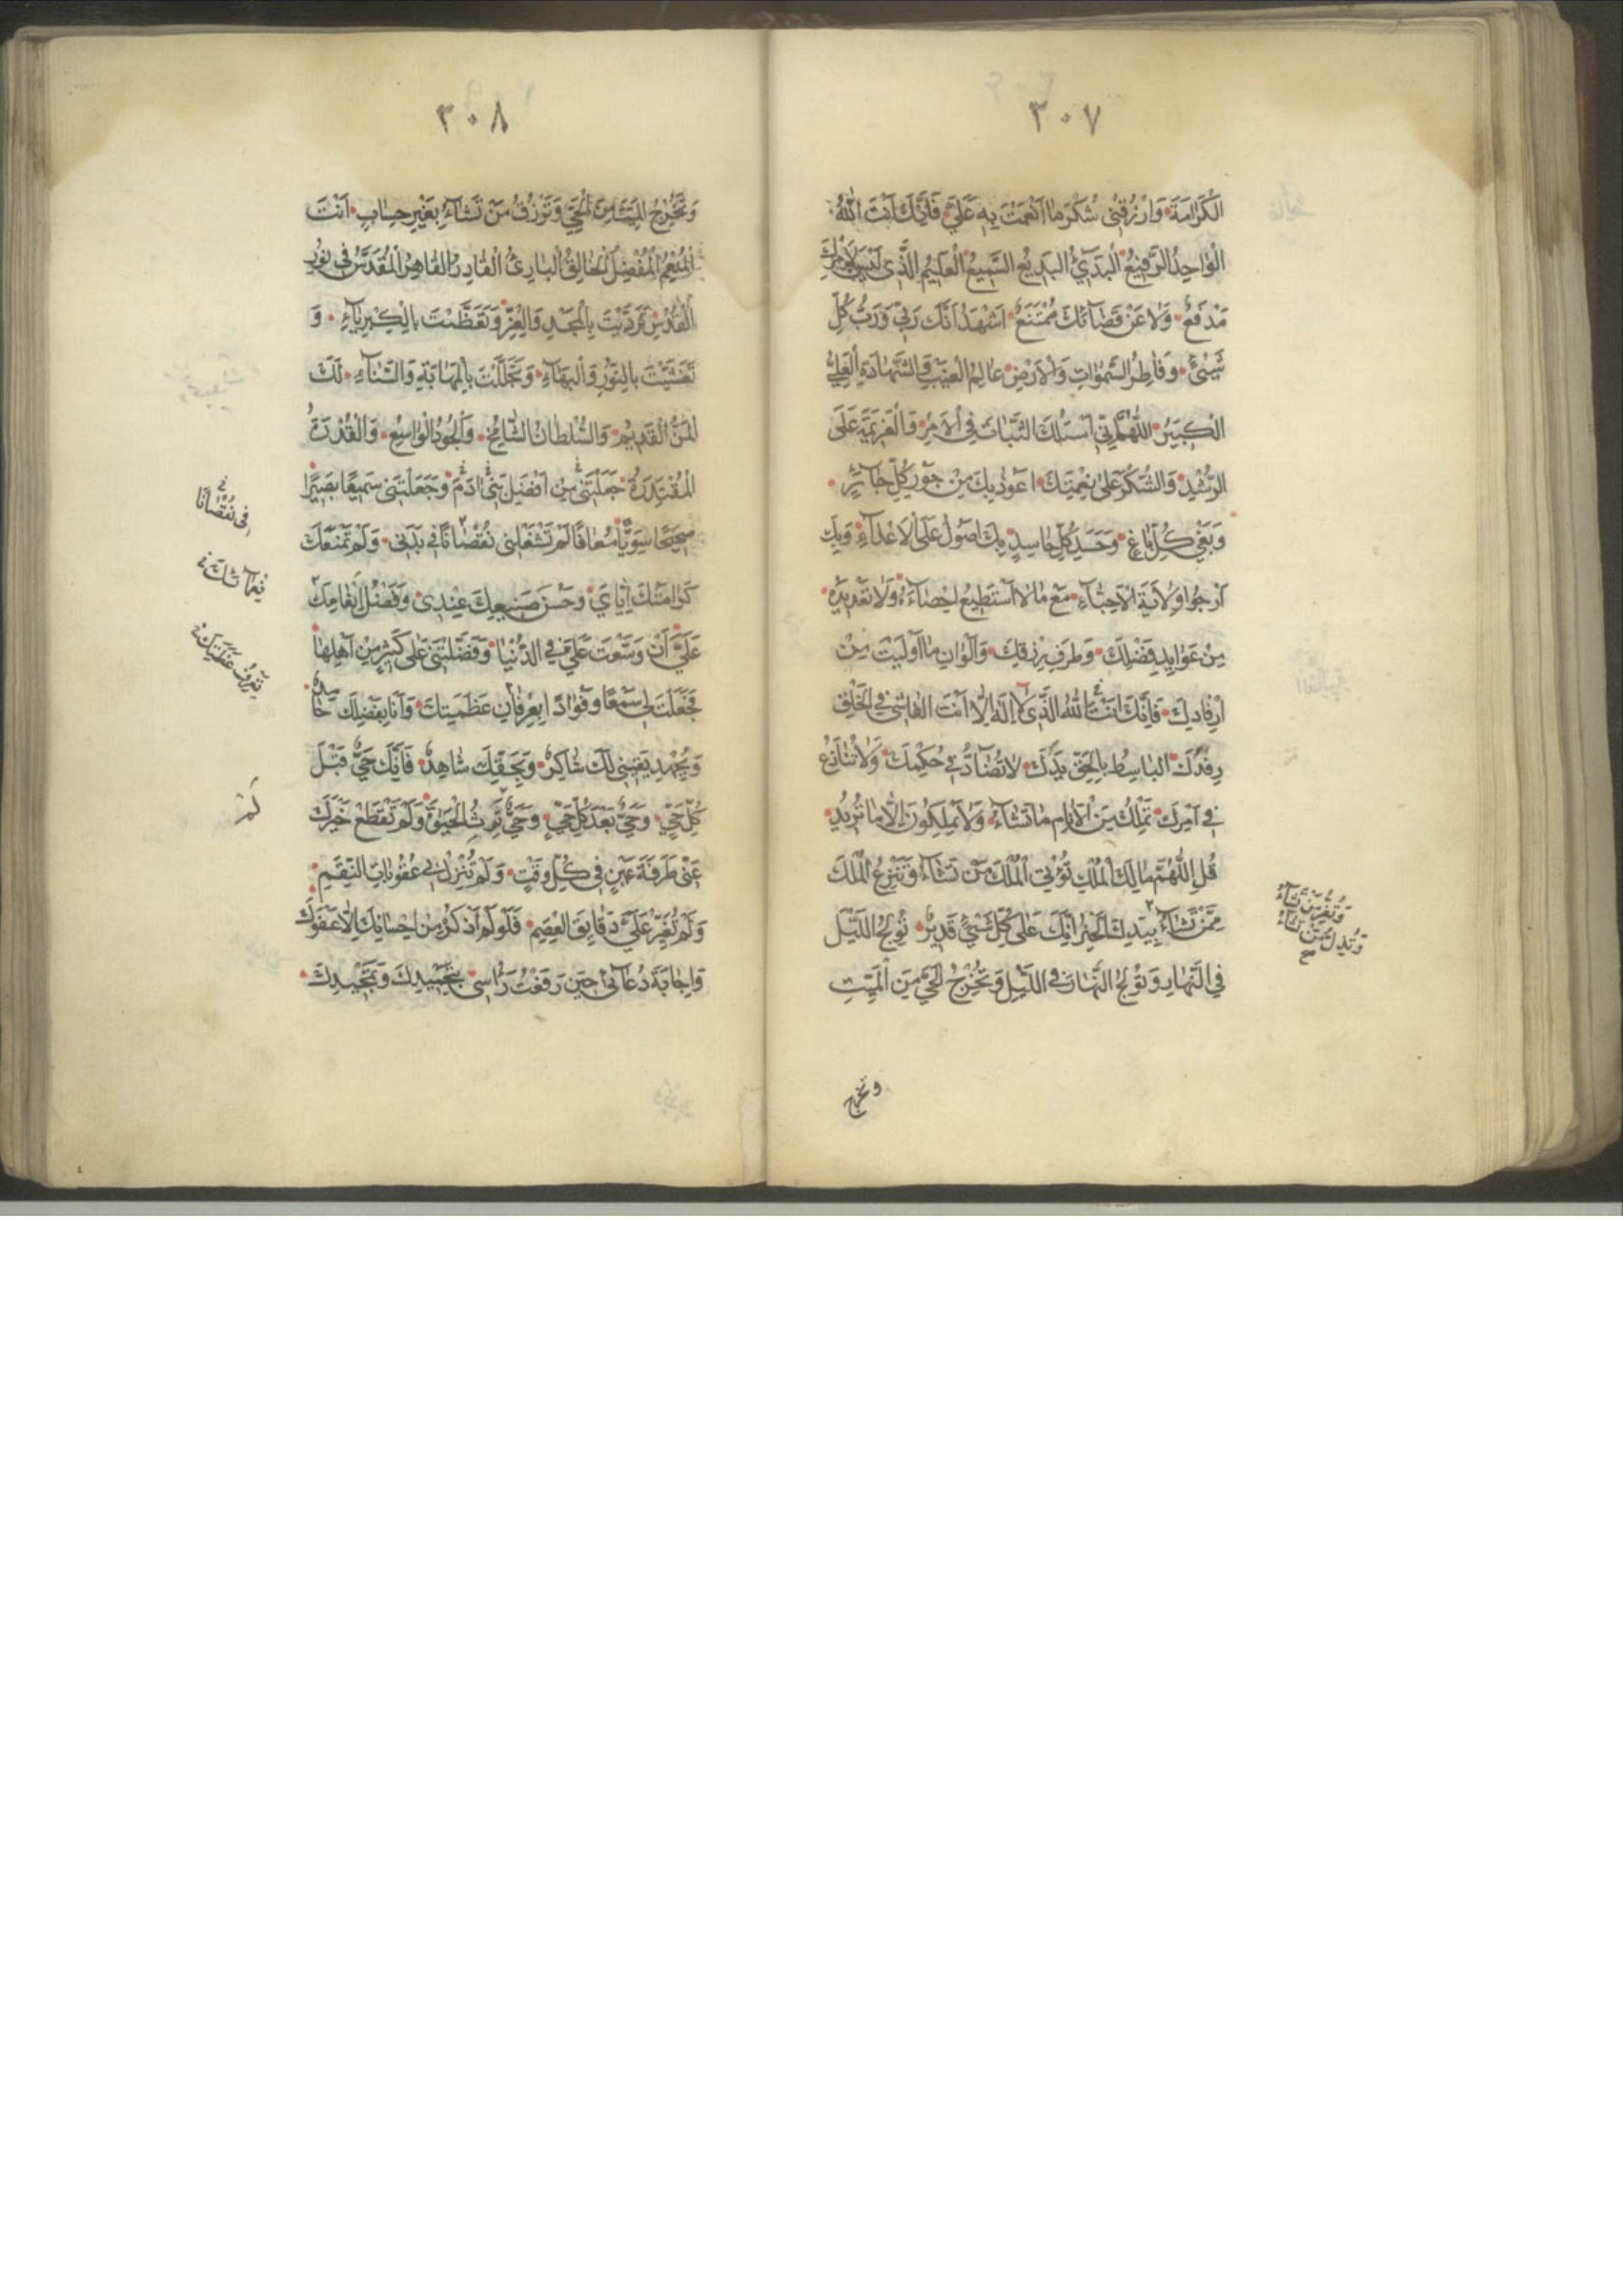 ٣٠٧
الْكَرَامَةَ وَارْزُقْنِی شُكْرَ مَا اَنْعَمْتَ بِهِ عَلَیَّ فَاِنَّكَ اَنْتَ اللّٰهُ
الْوَاحِدُ الرَّفِیعُ الْبَدِیْٓءُ الْبَدِیعُ السَّمِیعُ الْعَلِیمُ الَّذِی لَیْسَ لِاَمْرِكَ
مَدْفَعٌ وَلَا عَنْ قَضَآئِكَ مُمْتَنَعٌ اَشْهَدُ اَنَّكَ رَبِّی وَرَبُّ كُلِّ
شَیْئٍ وَفَاطِرُ السَّمٰوَاتِ وَالْاَرْضِ عَالِمُ الْغَیْبِ وَالشَّهَادَةِ الْعَلِیُّ
الْكَبِیرُ اَللّٰهُمَّ اِنِّی اَسْئَلُكَ الثَّبَاتَ فِی الْاَمْرِ وَالْعَزِیمَةَ عَلَی
الرُّشْدِ وَالشُّكْرَ عَلٰی نِعْمَتِكَ اَعُوذُ بِكَ مِنْ جَوْرِ كُلِّ جَآئِرٍ
وَبَغْیِ كُلِّ بَاغٍ وَحَسَدِ كُلِّ حَاسِدٍ بِكَ اَصُولُ عَلَی الْاَعْدَآءِ وَبِكَ
اَرْجُوا وِلَایَةَ الْاَحِبَّآءِ مَعَ مَا لَا اَسْتَطِیعُ اِحْصَآءَهُ وَلَا تَعْدِیدَهُ
مِنْ عَوَایِدِ فَضْلِكَ وَطُرَفِ رِزْقِكَ وَاَلْوَانِ مَا اَوْلَیْتَ مِنْ
اِرْفَادِكَ فَاِنَّكَ اَنْتَ اللّٰهُ الَّذِی لَا اِلٰهَ اِلَّا اَنْتَ الْفَاشِی فِی الْخَلْقِ
رِفْدُكَ الْبَاسِطُ بِالْحَقِّ یَدَكَ لَا تُضَآدُّ فِی حُكْمِكَ وَلَا تُنَازَعُ
فِی اَمْرِكَ تَمْلِكُ مِنَ الْاَنَامِ مَا تَشَآءُ وَلَا یَمْلِكُونَ اِلَّا مَا تُرِیدُ
قُلِ اللّٰهُمَّ مَالِكَ الْمُلْكِ تُؤْتِی الْمُلْكَ مَنْ تَشَآءُ وَتَنْزِعُ الْمُلْكَ
مِمَّنْ تَشَآءُ بِیَدِكَ الْخَیْرُ اِنَّكَ عَلٰی كُلِّ شَیْئٍ قَدِیرٌ تُولِجُ اللَّیْلَ
وَتُعِزُّ مَنْ تَشَآءُ
وَتُذِلُّ مَنْ تَشَآءُ
فِی النَّهَارِ وَتُولِجُ النَّهَارَ فِی اللَّیْلِ وَتُخْرِجُ الْحَیَّ مِنَ الْمَیِّتِ
وتخرج
٣٠٨
وَتُخْرِجُ الْمَیِّتَ مِنَ الْحَیِّ وَتَرْزُقُ مَنْ تَشَآءُ بِغَیْرِ حِسَابٍ اَنْتَ
الْمُنْعِمُ الْمُفْضِلُ الْخَالِقُ الْبَارِئُ الْقَادِرُ الْقَاهِرُ الْمُقَدَّسُ فِی نُورِ
الْقُدْسِ تَرَدَّیْتَ بِالْمَجْدِ وَالْعِزِّ وَتَعَظَّمْتَ بِالْكِبْرِیَآءِ وَ
تَغَشَّیْتَ بِالنُّورِ وَالْبَهَآءِ وَتَجَلَّلْتَ بِالْمَهَابَةِ وَالسَّنَآءِ لَكَ
الْمَنُّ الْقَدِیمُ وَالسُّلْطَانُ الشَّامِخُ وَالْجُودُ الْوَاسِعُ وَالْقُدْرَةُ
الْمُقْتَدِرَةُ جَعَلْتَنِی مِنْ اَفْضَلِ بَنِی اٰدَمَ وَجَعَلْتَنِی سَمِیعًا بَصِیرًا
صَحِیحًا سَوِیًّا مُعَافًا لَمْ تَشْغَلْنِی نُقْصَانًا فِی بَدَنِی وَلَمْ تَمْنَعْكَ
فِی نُقْصَانًا
كَرَامَتُكَ اِیَّایَ وَحُسْنَ صَنِیعِكَ عِنْدِی وَفَضْلُ اِنْعَامِكَ
نَعْمَآئِكَ
عَلَیَّ اَنْ وَسَّعْتَ عَلَیَّ فِی الدُّنْیَا وَفَضَّلْتَنِی عَلٰی كَثِیرٍ مِنْ اَهْلِهَا
فَجَعَلْتَ لِی سَمْعًا وَفُؤَادًا بِعِرْفَانِ عَظَمَتِكَ وَاَنَا بِفَضْلِكَ حَامِدٌ
یَعْرِفُ عَظَمَتَكَ
وَبِجُهْدِ یَقِینِی لَكَ شَاكِرٌ وَبِحَقِّكَ شَاهِدٌ فَاِنَّكَ حَیٌّ قَبْلَ
كُلِّ حَیٍّ وَحَیٌّ بَعْدَ كُلِّ حَیٍّ وَحَیٌّ تَرِثُ الْحَیٰوةَ وَلَمْ تَقْطَعْ خَیْرَكَ
لَمْ
عَنِّی طَرْفَةَ عَیْنٍ فِی كُلِّ وَقْتٍ وَلَمْ تُنْزِلْ بِی عُقُوبَاتِ النِّقَمِ
وَلَمْ تُغَیِّرْ عَلَیَّ دَقَایِقَ الْعِصَمِ فَلَوْ لَمْ اَذْكُرْ مِنْ اِحْسَانِكَ اِلَّا عَفْوَكَ
وَاِجَابَةَ دُعَآئِی حِینَ رَفَعْتُ رَاْسِی بِتَحْمِیدِكَ وَتَمْجِیدِكَ